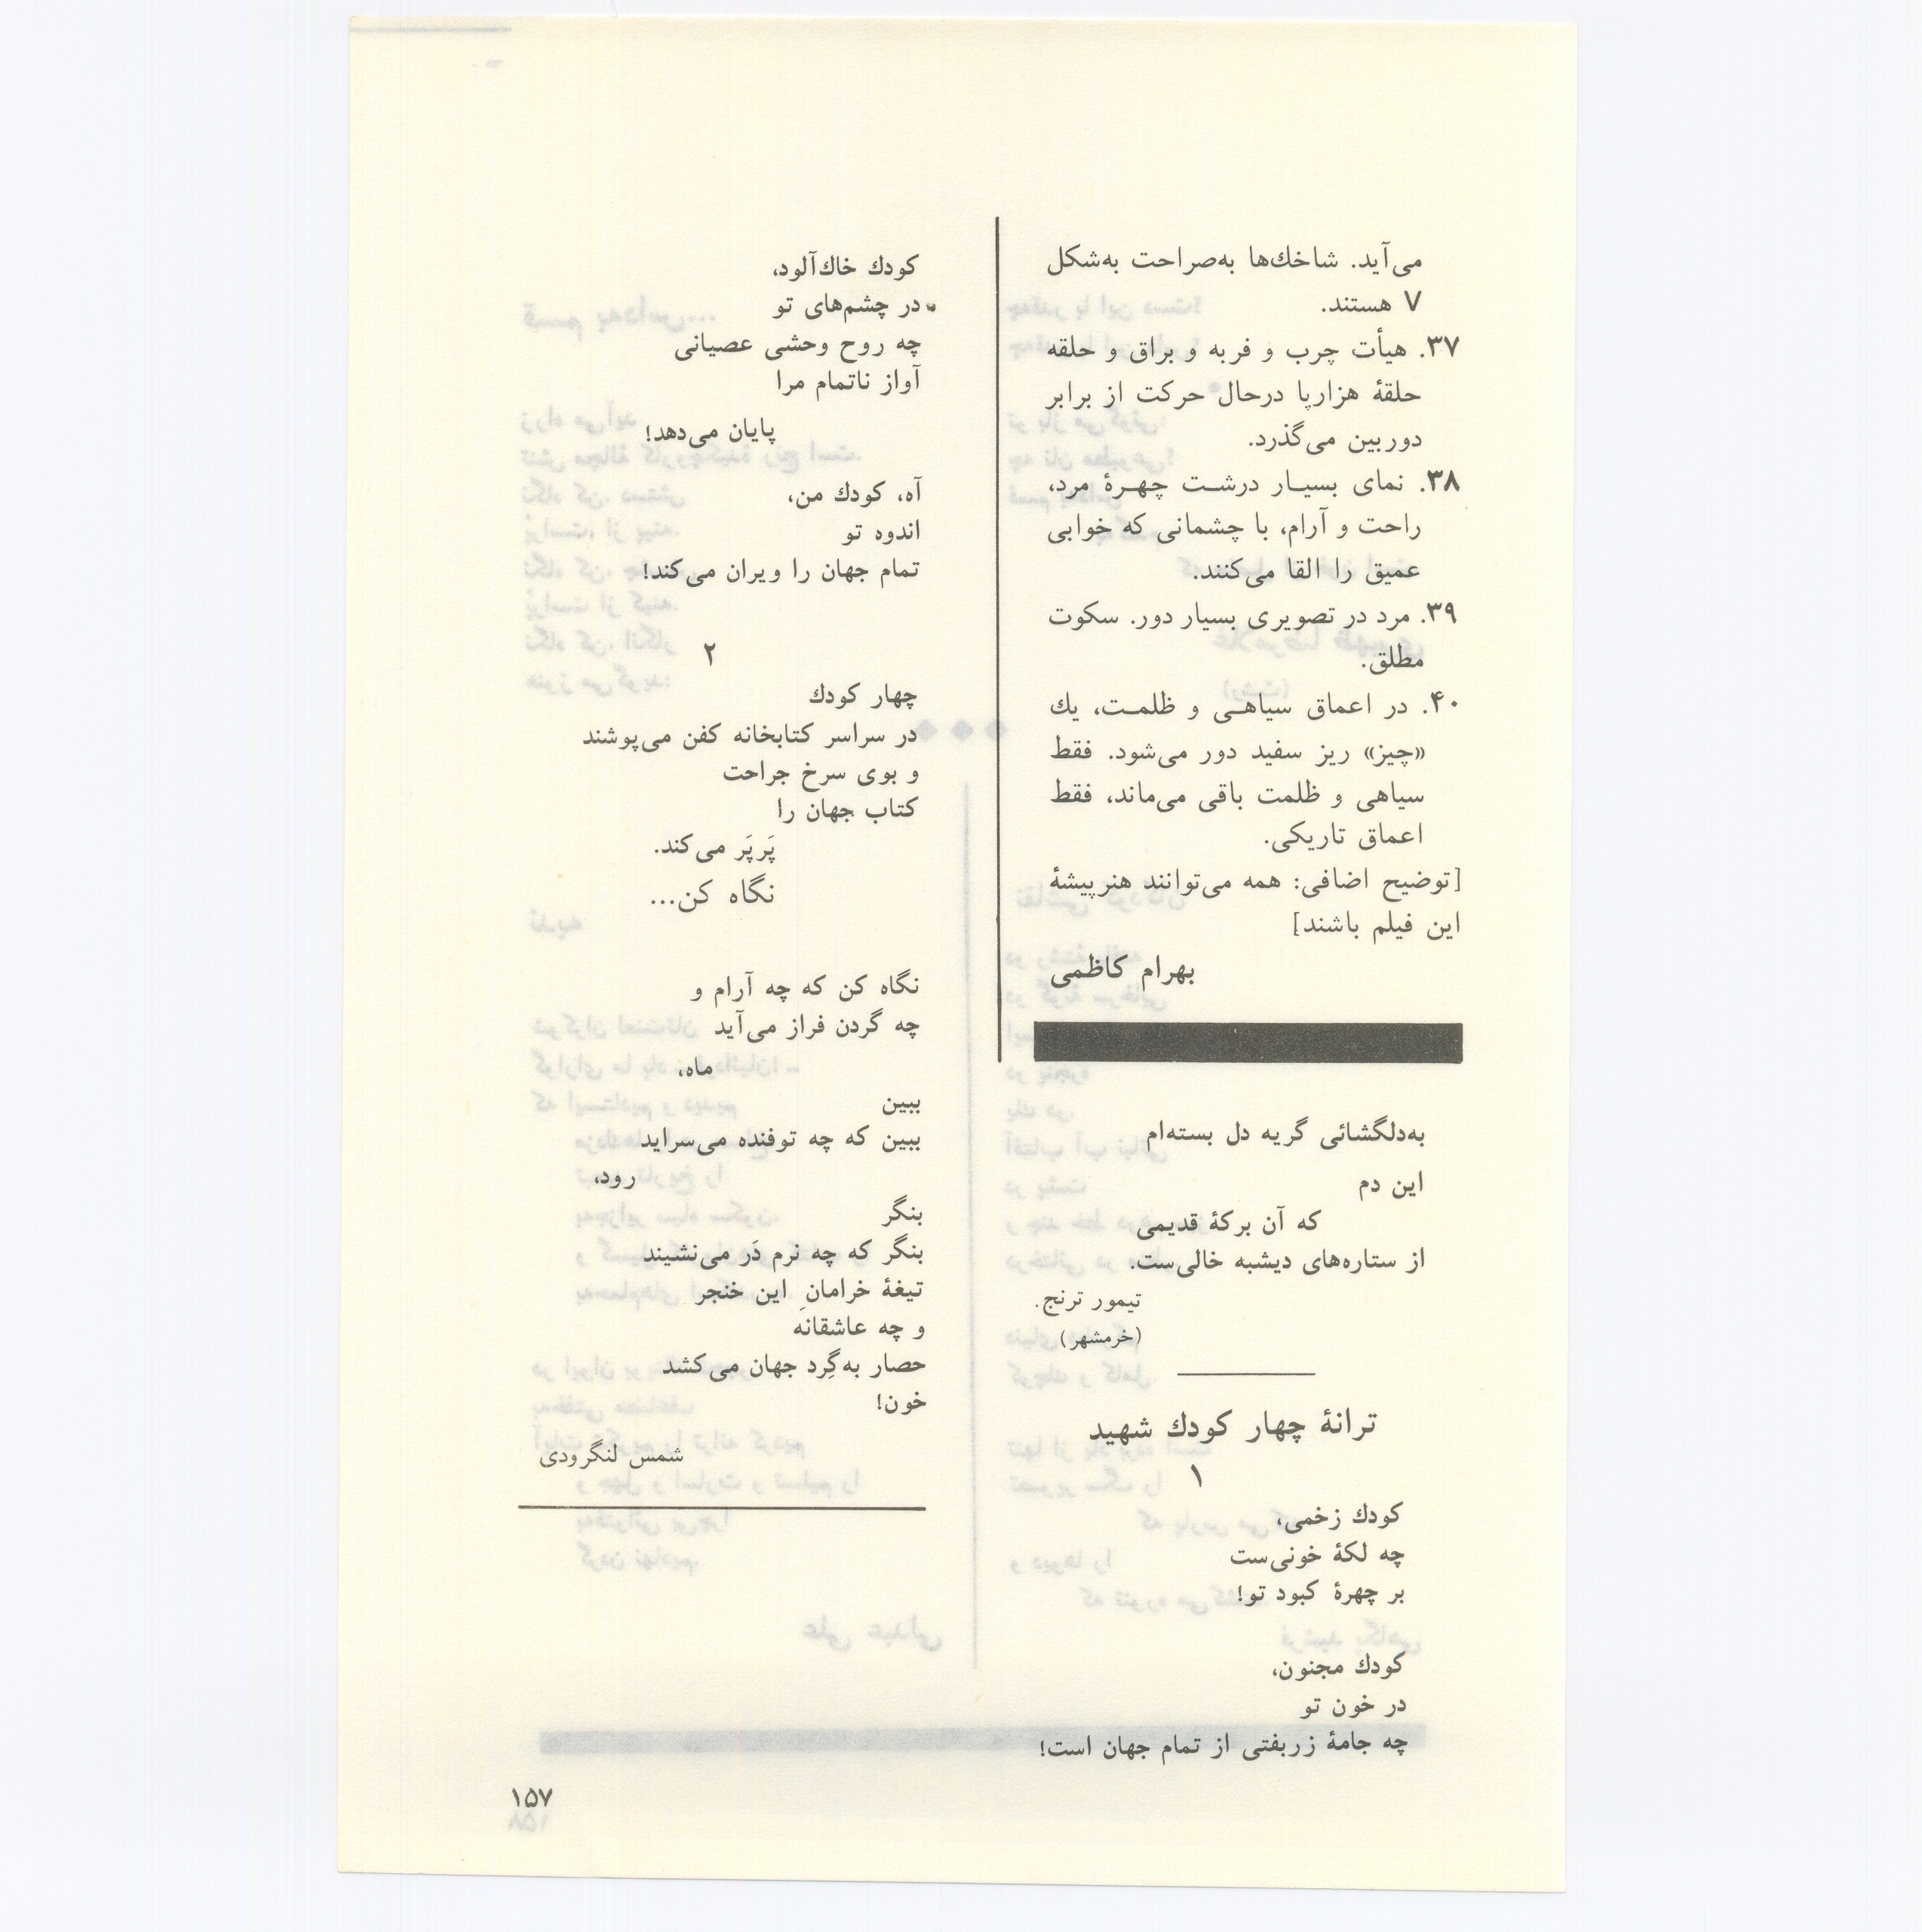 می‌آید. شاخك‌ها به‌صراحت به‌شكل
۷ هستند.
۳۷. هیأت چرب و فربه و براق و حلقه
حلقهٔ هزارپا درحال حركت از برابر
دوربین می‌گذرد.
۳۸. نمای بسیار درشت چهرهٔ مرد،
راحت و آرام، با چشمانی كه خوابی
عمیق را القا می‌كنند.
۳۹. مرد در تصویری بسیار دور. سكوت
مطلق.
۴۰. در اعماق سیاهی و ظلمت، یك
«چیز» ریز سفید دور می‌شود. فقط
سیاهی و ظلمت باقی می‌ماند، فقط
اعماق تاریكی.
[توضیح اضافی: همه می‌توانند هنرپیشهٔ
این فیلم باشند]
بهرام كاظمی
به‌دلگشائی گریه دل بسته‌ام
این دم
كه آن بركهٔ قدیمی
از ستاره‌های دیشبه خالی‌ست.
تیمور ترنج.
(خرمشهر)
ترانهٔ چهار كودك شهید
۱
كودك زخمی،
چه لكهٔ خونی‌ست
بر چهرهٔ كبود تو!
كودك مجنون،
در خون تو
چه جامهٔ زربفتی از تمام جهان است!
كودك خاك‌آلود،
در چشم‌های تو
چه روح وحشی عصیانی
آواز ناتمام مرا
پایان می‌دهد!
آه، كودك من،
اندوه تو
تمام جهان را ویران می‌كند!
۲
چهار كودك
در سراسر كتابخانه كفن می‌پوشند
و بوی سرخ جراحت
كتاب جهان را
پَرپَر می‌كند.
نگاه كن...
نگاه كن كه چه آرام و
چه گردن فراز می‌آید
ماه،
ببین
ببین كه چه توفنده می‌سراید
رود،
بنگر
بنگر كه چه نرم دَر می‌نشیند
تیغهٔ خرامانِ این خنجر
و چه عاشقانه
حصار به‌گِرد جهان می‌كشد
خون!
شمس لنگرودی
۱۵۷